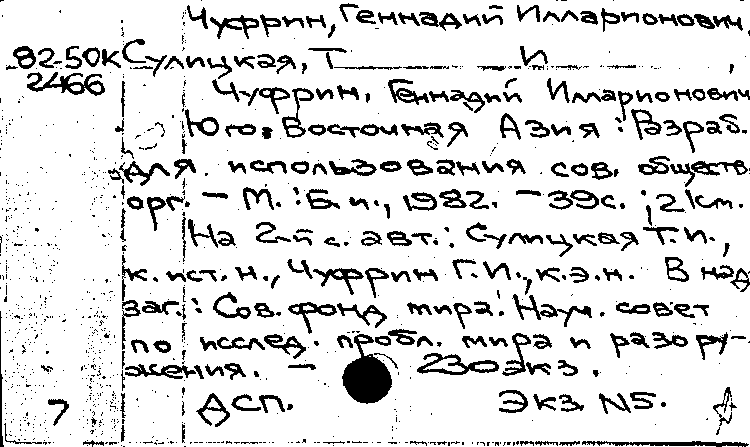 Чуфрин, Геннадий Илларионович,
82-50К Сулицкая, Т И ,
2466
Чуфрин, Геннадий Илларионович
Юго-Восточная Азия : Разраб.
для использования сов. обществ.
орг. – М. : Б. и., 1982. – 39 с. ; 21 cm.
На 2-й с. авт.: Сулицкая Т. И.,
к. ист. н., Чуфрин Г. И., к. э. н. В над
заг.: Сов. фонд мира. Науч. совет
по исслед. пробл. мира и разору-
жения. – 230 экз.
7 ДСП. Экз. N5.